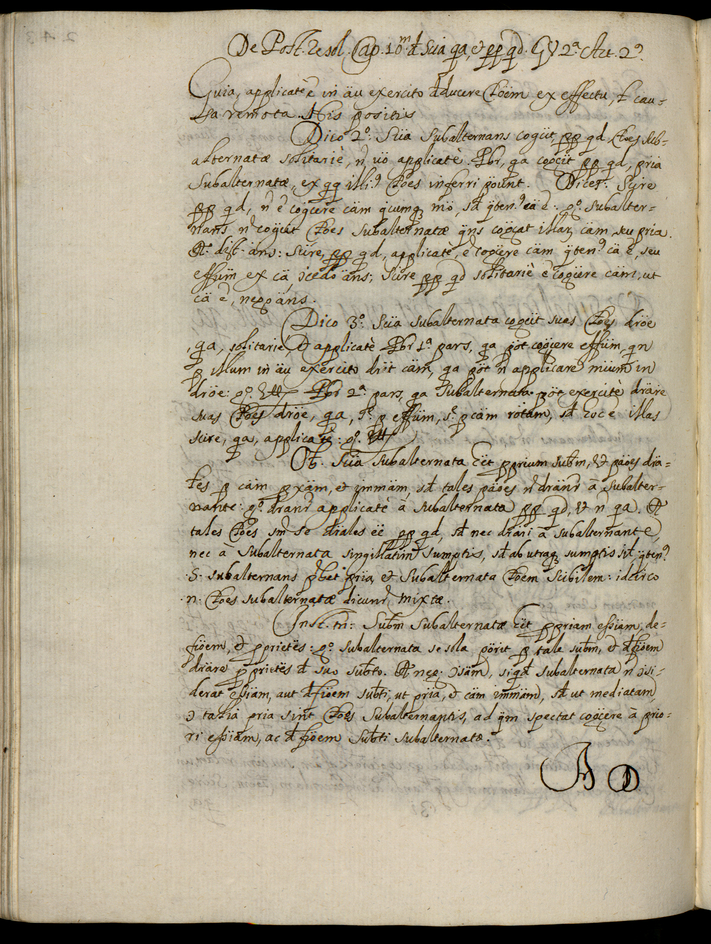 De Post. Resol. Cap. 10m d Scia qa, et pp qd. Gy 2a Art. 2o.
Guia, applicate è in äu exercito dducere Coem ex effectu, t cau-
sa remota. His positis
Dico 2o. Scïa Subalternans cogcit pp qd Coes Sub-
alternatæ solitariè, n vo applicatè. Pbr, qa cogcit pp qd, pria
Subalternatæ, ex qq illi9 Coes inferri pount. Dices. Scire
pp qd, n è cogcere cam qcumq mo, sd qten9 ca è: go Subalter-
nans, n cogcit Coes Subalternatæ qns cogcat illar cam seu pria.
R. dist. ans: Scire, pp qd, applicatè, è cogcere cam qten9 ca è, seu
effum ex ca, ccedo ans; Scire pp qd solitariè è cogcere cam, ut
ca è, nego ans.
Dico 3o. Scïa Subalternata cogcit suas Coes droe
qa, solitariè et applicatè. Pbr 1a pars, qa pot cogcere effum, qn
p illum in äu exercito drët cam, qa pot n applicare mium in
droe: go. Pbr 2a pars, qa Subalternata pot exercitè drare
suas Coes droe, qa, p effum, p cam rotam, sd hoc è illas
scire, qa, applicatè: go.
Ob. Scia Subalternata hët pprium subtm, et paoes dra-
tes p cam pxam, et immam, sd tales paoes n drant à subalter-
nante: go drant applicatè à Subalternata pp qd, et n qa. R.
tales Coes sm se diales ee pp qd, sd nec drari à Subalternante
nec à Subalternata singillatim sumptis, sd ab utraq sumptis sil qten9
S. subalternans pbet pria, et Subalternata Coem Scibilem: idcirco
n. Coes subalternatæ dicunt mixtæ.
Inst. tri: Subtm Subalternatæ hët ppriam essiam, de-
fioem, et pprietes: go. Subalternata se sola potit p tale subtm, et dfioem
drare pprietes d suo subto. R. nego. csam, siqd subalternata n csi-
derat essiam, aut dfioem subti, ut pria, et cam immam, sd ut mediatam
c talia pria sint Coes Subalternantis, ad qm spectat cogcere à prio-
ri essiam, ac dfioem Subti subalternatæ.
A D